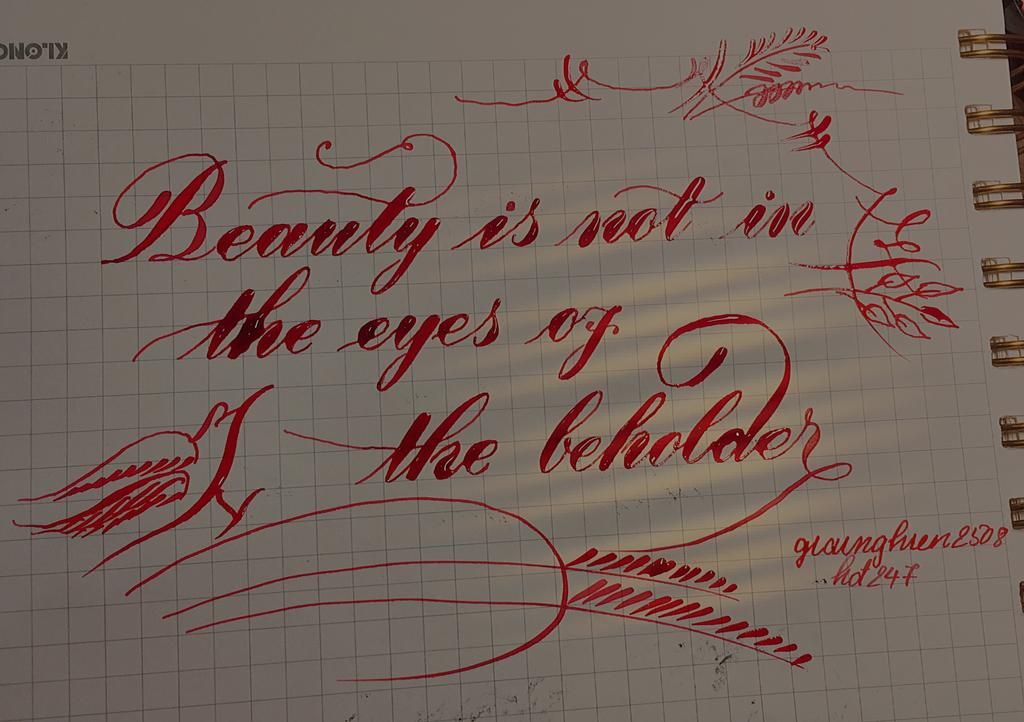 KLONG
Beauty is not in
the eyes of
the beholder
hdt247